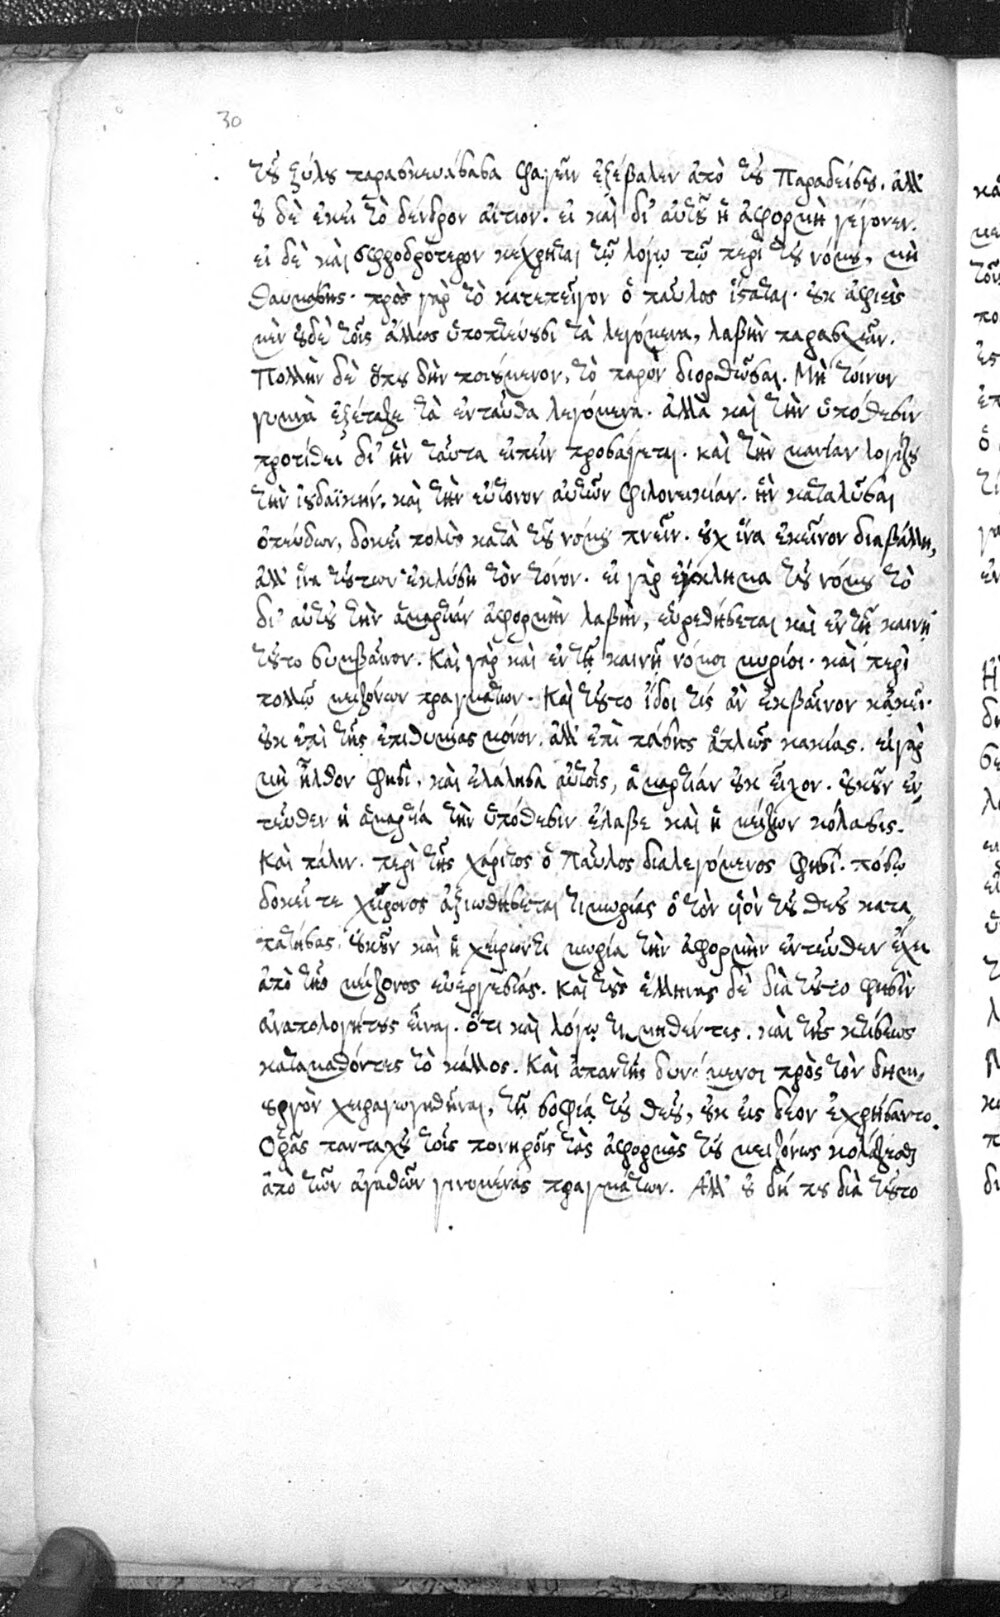 30
τοῦ ξύλου παρασκευάσασα φαγεῖν ἐξέβαλεν ἀπὸ τοῦ Παραδείσου. ἀλλ'
οὐ δὲ ἐκεῖ τὸ δένδρον αἴτιον. εἰ καὶ δι' αὐτοῦ ἡ ἀφορμὴ γέγονεν.
εἰ δὲ καὶ σφοδρότερον κέχρηται τῷ λόγῳ τῷ περὶ τοῦ νόμου, μὴ
θαυμάσῃς. πρὸς γὰρ τὸ κατεπεῖγον ὁ παῦλος ἵσταται. οὐκ ἀφιεὶς
μὲν οὐδὲ τοῖς ἄλλως ὑποπτεύουσι τὰ λεγόμενα, λαβὴν παρασχεῖν.
Πολλὴν δὲ σπουδὴν ποιούμενον, τὸ παρὸν διορθῶσαι. Μὴ τοίνυν
γυμνὰ ἐξέταζε τὰ ἐνταῦθα λεγόμενα. ἀλλὰ καὶ τὴν ὑπόθεσιν
προτίθει δι' ἣν ταῦτα εἰπεῖν προσάγεται. καὶ τὴν μανίαν λογίζου
τὴν ἰουδαϊκήν. καὶ τὴν εὔτονον αὐτῶν φιλονεικίαν. ἣν καταλῦσαι
σπεύδων, δοκεῖ πολὺς κατὰ τοῦ νόμου πνεῖν. οὐχ ἵνα ἐκεῖνον διαβάλλῃ,
ἀλλ' ἵνα τούτων ἐκλύσῃ τὸν τόνον. εἰ γὰρ ἔγκλημα τοῦ νόμου τὸ
δι' αὐτοῦ τὴν ἁμαρτίαν ἀφορμὴν λαβεῖν, εὑρεθήσεται καὶ ἐν τῇ καινῇ
τοῦτο συμβαῖνον. Καὶ γὰρ καὶ ἐν τῇ καινῇ νόμοι μυρίοι. καὶ περὶ
πολλῷ μειζόνων πραγμάτων. Καὶ τοῦτο ἴδοι τίς ἂν ἐκβαῖνον κἀκεῖ.
οὐκ ἐπὶ τῆς ἐπιθυμίας μόνον. ἀλλ' ἐπὶ πάσης ἁπλῶς κακίας. εἰ γὰρ
μὴ ἦλθον φησὶ. καὶ ἐλάλησα αὐτοῖς, ἁμαρτίαν οὐκ εἶχον. οὐκοῦν ἐν
τεῦθεν ἡ ἁμαρτία τὴν ὑπόθεσιν ἔλαβε καὶ ἡ μείζων κόλασις.
Καὶ πάλιν. περὶ τῆς χάριτος ὁ Παῦλος διαλεγόμενος φησί. πόσῳ
δοκεῖτε χείρονος ἀξιωθήσεται τιμωρίας ὁ τὸν υἱὸν τοῦ θεοῦ κατα
πατήσας, οὐκοῦν καὶ ἡ χείρων τιμωρία τὴν ἀφορμὴν ἐντεῦθεν ἔχει
ἀπὸ τῆς μείζονος εὐεργεσίας. Καὶ τοὺς ἕλληνας δὲ διὰ τοῦτο φησὶν
ἀναπολογήτους εἶναι. ὅτι καὶ λόγῳ τιμηθέντες. καὶ τῆς κτίσεως
καταμαθόντες τὸ κάλλος. Καὶ ἀπαυτῆς δυνάμενοι πρὸς τὸν δημι
ουργὸν χειραγωγηθῆναι, τῇ σοφίᾳ τοῦ θεοῦ, οὐκ εἰς δέον ἐχρήσαντο.
Ὁρᾷς πανταχοῦ τοῖς πονηροῖς τὰς ἀφορμὰς τοῦ μειζόνως κολάζεσθαι
ἀπὸ τῶν ἀγαθῶν γινομένας πραγμάτων. Ἀλλ' οὐ δή που διὰ τοῦτο